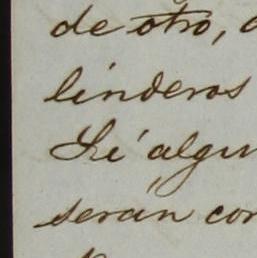 de otro,
linderos
Si algu
seran con